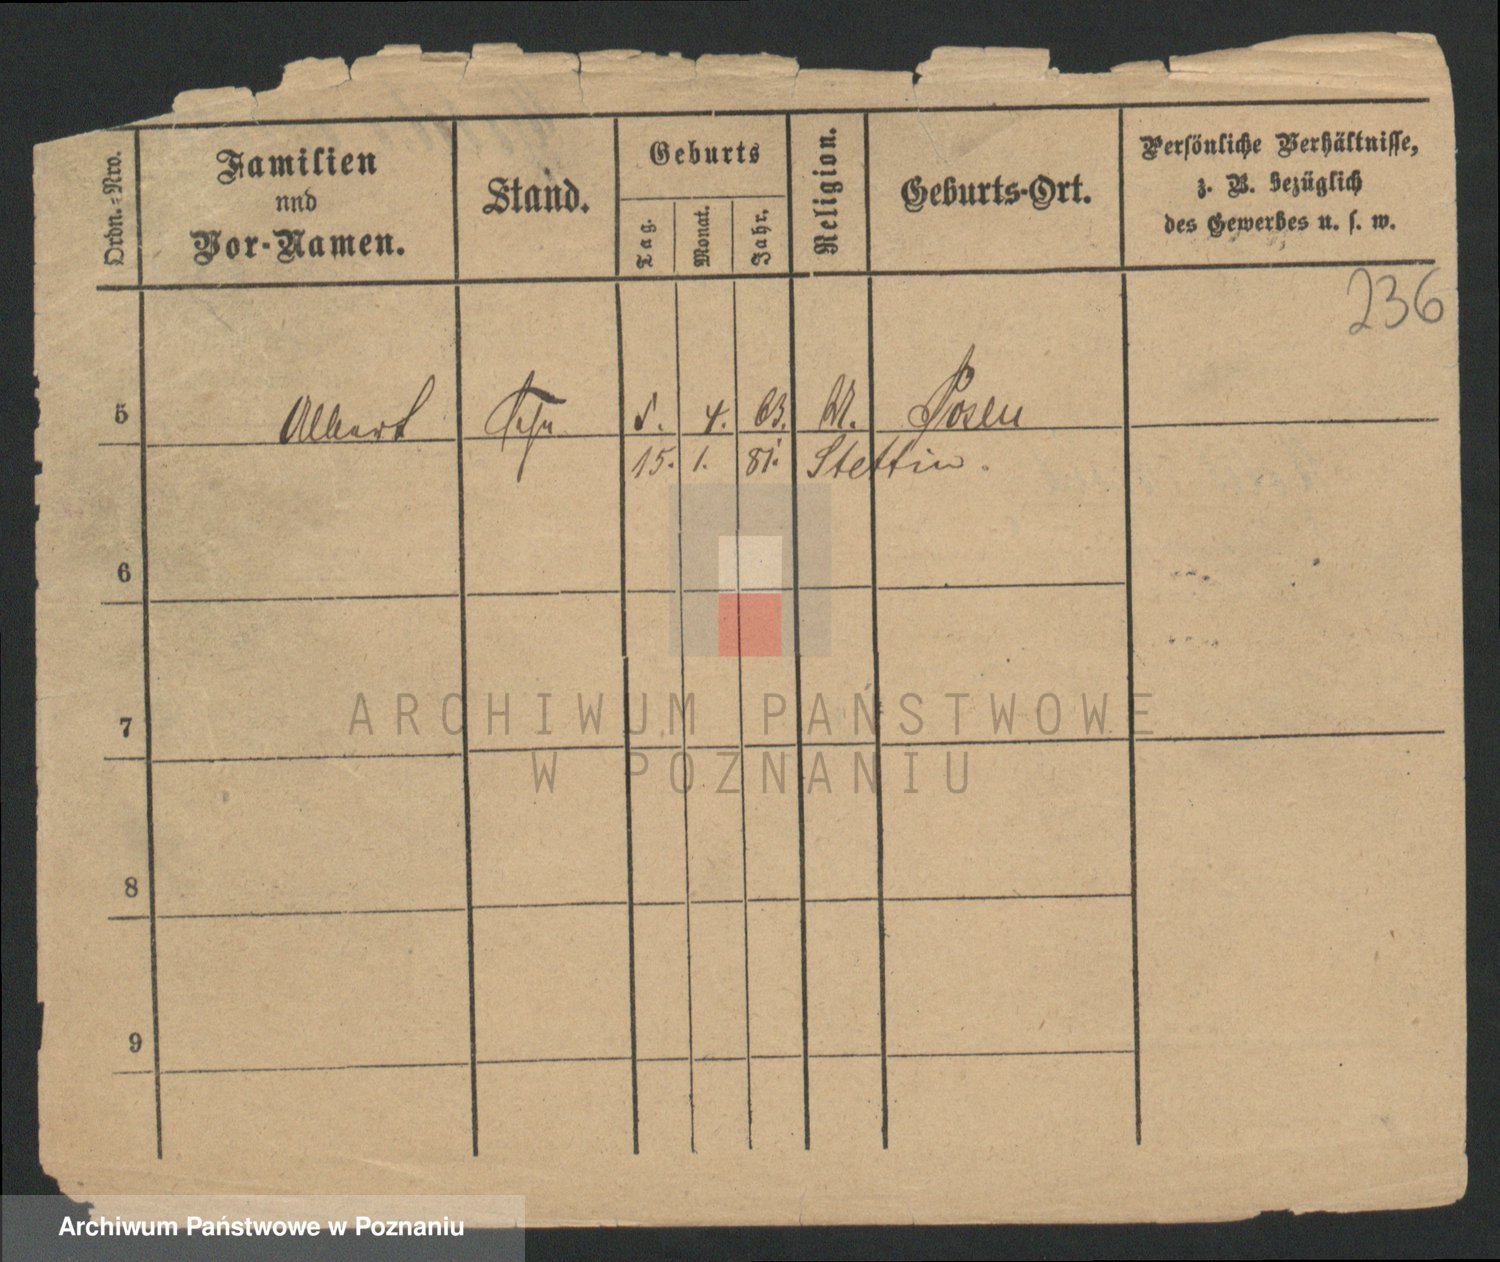 Ordn.-Nro.
Familien
nnd
Vor-Namen.
Stand.
Geburts
Tag.
Monat.
Jahr.
Religion.
Geburts-Ort.
Persönliche Verhältnisse,
z. B. bezüglich
des Gewerbes u. s. w.
236
5 Albert 4. 63. Posen
15. 1. 81. Stettin.
6
7
8
9
ARCHIWUM PAŃSTWOWE
W POZNANIU
Archiwum Państwowe w Poznaniu